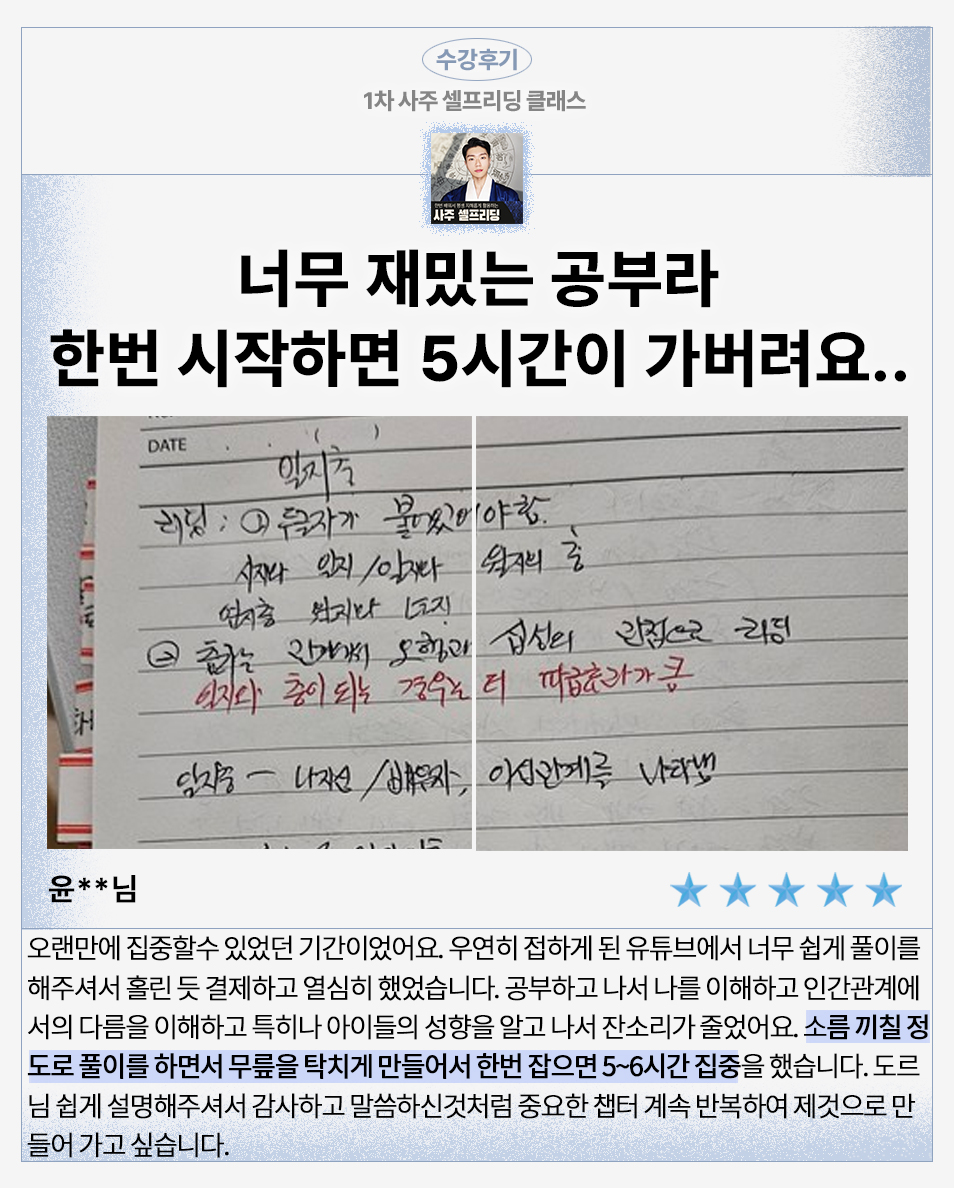 수강후기
1차 사주 셀프리딩 클래스
사주 셀프리딩
너무 재밌는 공부라
한번 시작하면 5시간이 가버려요..
DATE . . ( )
일지충
리딩 : ① 두글자가 붙어있어야함.
시지와 일지 / 일지와 월지의 충
년지충 월지와 년지
② 충하는 관계에서 오행과 십성의 관점으로 리딩
일지와 충이 되는 경우는 더 파급효과가 큼
일지충 - 나자신 / 배우자, 이성관계를 나타냄
윤**님
오랜만에 집중할수 있었던 기간이었어요. 우연히 접하게 된 유튜브에서 너무 쉽게 풀이를
해주셔서 홀린 듯 결제하고 열심히 했었습니다. 공부하고 나서 나를 이해하고 인간관계에
서의 다름을 이해하고 특히나 아이들의 성향을 알고 나서 잔소리가 줄었어요. 소름 끼칠 정
도로 풀이를 하면서 무릎을 탁치게 만들어서 한번 잡으면 5~6시간 집중을 했습니다. 도르
님 쉽게 설명해주셔서 감사하고 말씀하신것처럼 중요한 챕터 계속 반복하여 제것으로 만
들어 가고 싶습니다.